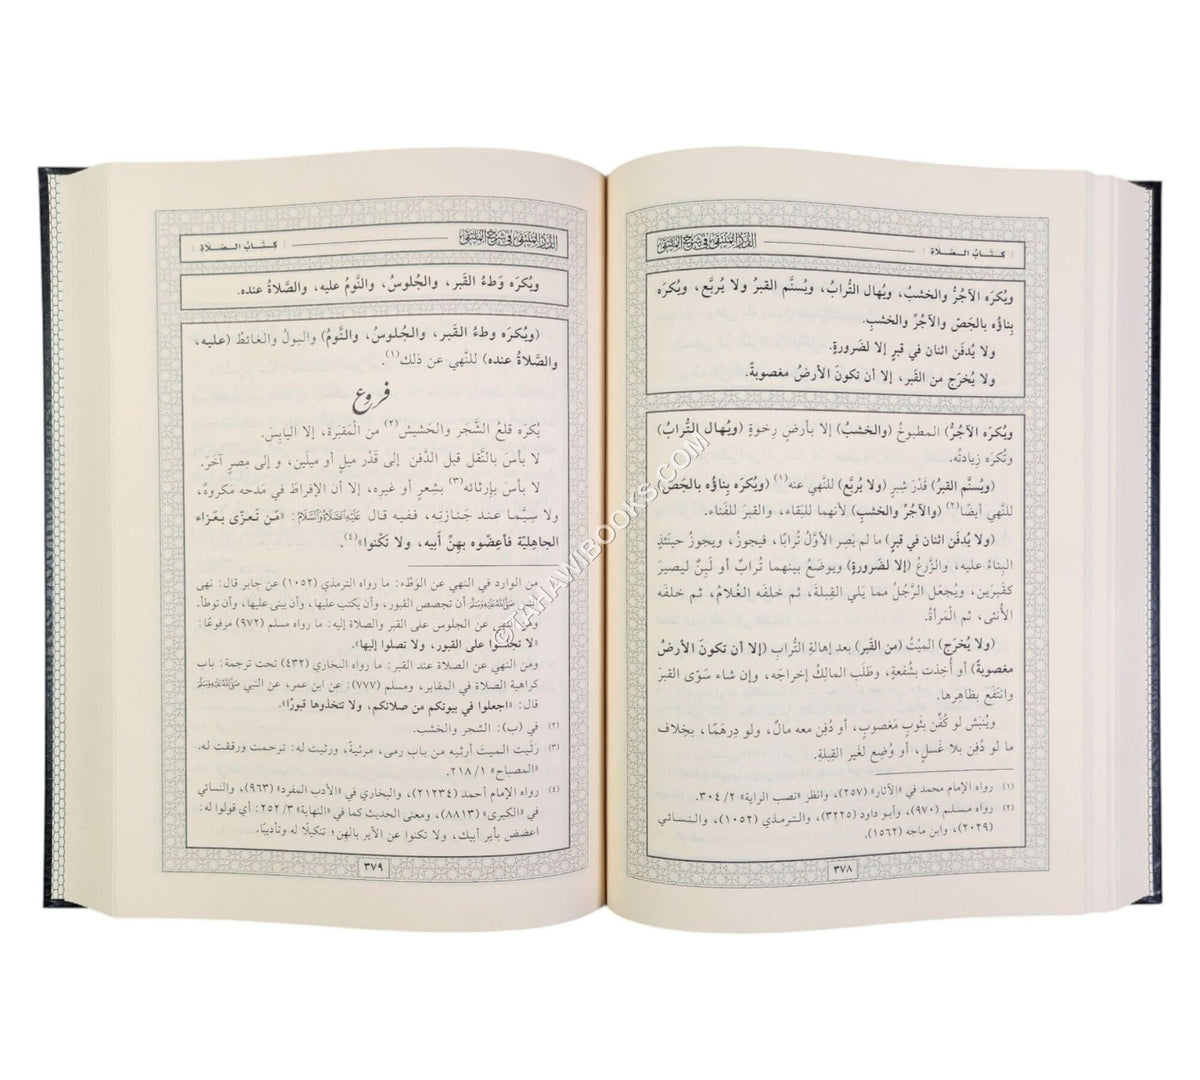 كتاب الصلاة
الدر المنتقى في شرح الملتقى
ويُكرَه الآجُرُّ والخشبُ، ويُهال التُّرابُ، ويُسنَّم القبرُ ولا يُربَّع، ويُكرَه
بِناؤُه بالجَصّ والآجُرِّ والخشبِ.
ولا يُدفَن اثنان في قبرٍ إلا لضَرورةٍ.
ولا يُخرَج من القَبر، إلا أن تكونَ الأرضُ مغصوبةً.
(ويُكرَه الآجُرُّ) المطبوخُ (والخشبُ) إلا بأرضٍ رخوةٍ (ويُهال التُّرابُ)
وتُكرَه زِيادتُه.
(ويُسنَّم القبرُ) قَدْرَ شِبرٍ (ولا يُربَّع) للنَّهي عنه(١) (ويُكرَه بِناؤُه بالجَصّ)
للنَّهي أيضًا(٢) (والآجُرِّ والخشبِ) لأنهما للبَقاء، والقبرَ للفَناء.
(ولا يُدفَن اثنان في قبرٍ) ما لم يَصِرِ الأوَّلُ تُرابًا، فيجوزُ، ويجوزُ حينئذٍ
البِناءُ عليه، والزَّرعُ (إلا لضَرورةٍ) ويوضَعُ بينهما تُرابٌ أو لَبِنٌ ليصيرَ
كقَبرَين، ويُجعَل الرَّجُلُ مما يَلي القِبلةَ، ثم خلفَه الغُلامُ، ثم خلفَه
الأُنثى، ثم المَرأةُ.
(ولا يُخرَج) الميْتُ (من القَبر) بعد إهالةِ التُّرابِ (إلا أن تكونَ الأرضُ
مغصوبةً) أو أُخِذت بشُفعةٍ، وطَلَب المالِكُ إخراجَه، وإن شاء سَوّى القبرَ
وانتَفَع بظاهِرها.
ويُنبَش لو كُفِّن بثَوبٍ مَغصوبٍ، أو دُفِن معه مالٌ، ولو دِرهَمًا، بخِلاف
ما لو دُفِن بلا غَسلٍ، أو وُضِع لغَير القِبلةِ.
(١) رواه الإمام محمد في «الآثار» (٢٥٧)، وانظر «نصب الراية» ٢/ ٣٠٤.
(٢) رواه مسلم (٩٧٠)، وأبو داود (٣٢٢٥)، والترمذي (١٠٥٢)، والنسائي
(٢٠٢٩)، وابن ماجه (١٥٦٢).
٣٧٨
الدر المنتقى في شرح الملتقى
كتاب الصلاة
ويُكرَه وَطءُ القَبر، والجُلوسُ، والنَّومُ عليه، والصَّلاةُ عنده.
(ويُكرَه وطءُ القَبر، والجُلوسُ، والنَّومُ) والبولُ والغائطُ (عليه،
والصَّلاةُ عنده) للنَّهي عن ذلك(١).
فروع
يُكرَه قلعُ الشَّجَر والحَشيش(٢) من المَقبَرة، إلا اليابِسَ.
لا بأسَ بالنَّقل قبل الدَّفن إلى قَدْر مِيلٍ أو مِيلَين، وإلى مِصرٍ آخَرَ.
لا بأسَ بإرثائه(٣) بشِعرٍ أو غيرِه، إلا أن الإفراطَ في مَدحه مَكروهٌ،
ولا سِيَّما عند جَنازتِه، ففيه قال عليه الصلاة والسلام: «مَن تَعزّى بعَزاء
الجاهِليّة فأعِضّوه بهِنِ أبيه، ولا تَكْنوا»(٤).
(١) من الوارد في النهي عن الوطء: ما رواه الترمذي (١٠٥٢) عن جابر قال: نهى
النبي صلى الله عليه وسلم أن تجصص القبور، وأن يكتب عليها، وأن يبنى عليها، وأن توطأ.
ومن النهي عن الجلوس على القبر والصلاة إليه: ما رواه مسلم (٩٧٢) مرفوعًا:
«لا تجلسوا على القبور، ولا تصلوا إليها».
ومن النهي عن الصلاة عند القبر: ما رواه البخاري (٤٣٢) تحت ترجمة: باب
كراهية الصلاة في المقابر، ومسلم (٧٧٧): عن ابن عمر، عن النبي صلى الله عليه وسلم
قال: «اجعلوا في بيوتكم من صلاتكم، ولا تتخذوها قبورًا».
(٢) في (ب): الشجر والخشب.
(٣) رَثَيت الميتَ أرثيه من باب رمى، مرثيةً، ورثيت له: ترحمت ورققت له.
«المصباح» ١/ ٢١٨.
(٤) رواه الإمام أحمد (٢١٢٣٤)، والبخاري في «الأدب المفرد» (٩٦٣)، والنسائي
في «الكبرى» (٨٨١٣)، ومعنى الحديث كما في «النهاية» ٣/ ٢٥٢: أي قولوا له:
اعضض بأير أبيك، ولا تكنوا عن الأير بالهن؛ تنكيلًا له وتأديبًا.
٣٧٩
©TAHAWIBOOKS.COM